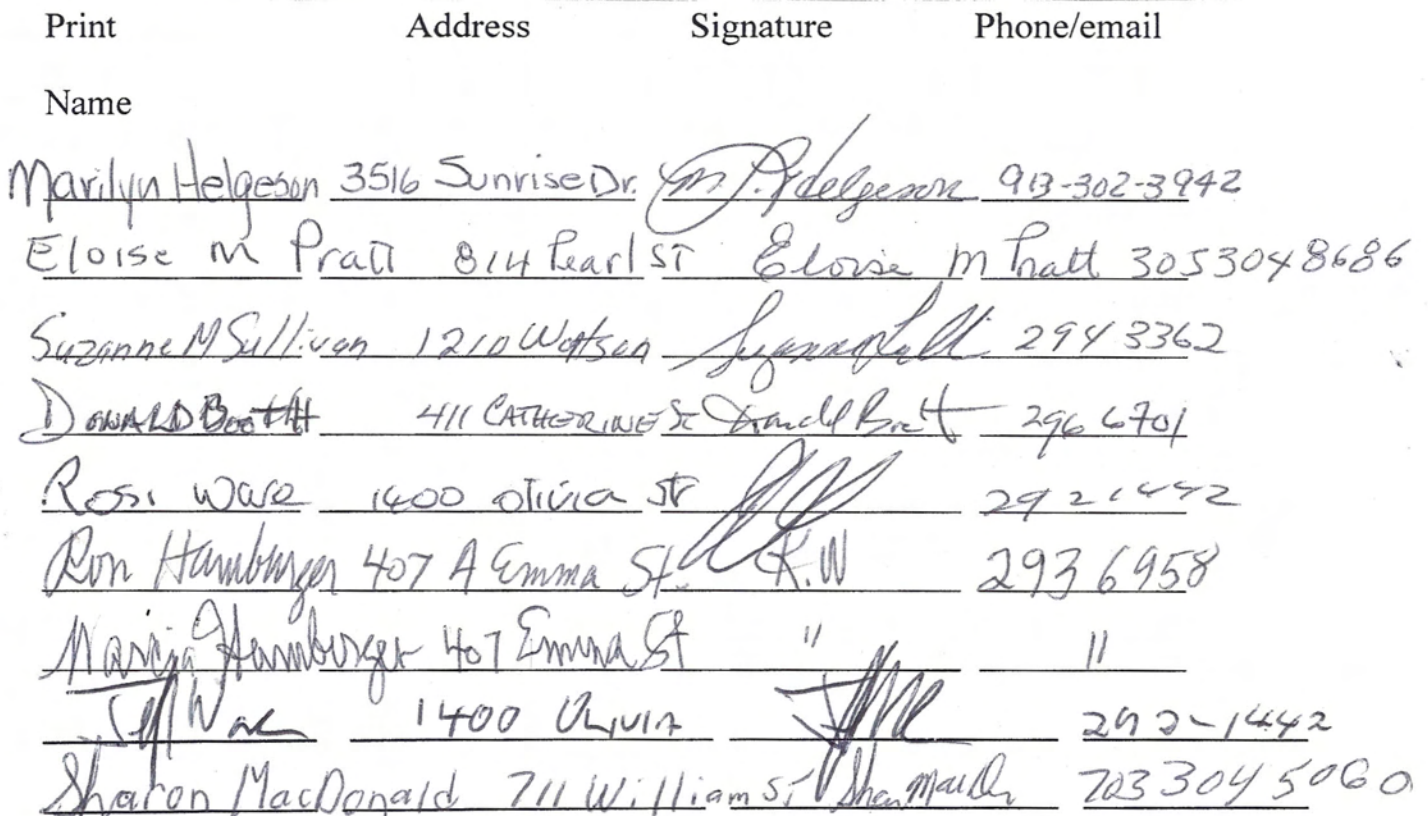 Print Address Signature Phone/email
Name
Marilyn Helgeson 3516 Sunrise Dr. M. P. Helgeson 913-302-3942
Eloise M Pratt 814 Pearl ST Eloise M Pratt 3053048686
Suzanne M Sullivan 1210 Watson 294 3362
DONALD Booth 411 CATHERINE St 296 6701
Rosi Ware 1400 olivia St 292 1442
Ron Hamburger 407 A Emma St. R.W 293 6958
Marcia Hamburger 407 Emma St " "
Jeff Ware 1400 Olivia 292-1442
Sharon MacDonald 711 William St 703 304 5060